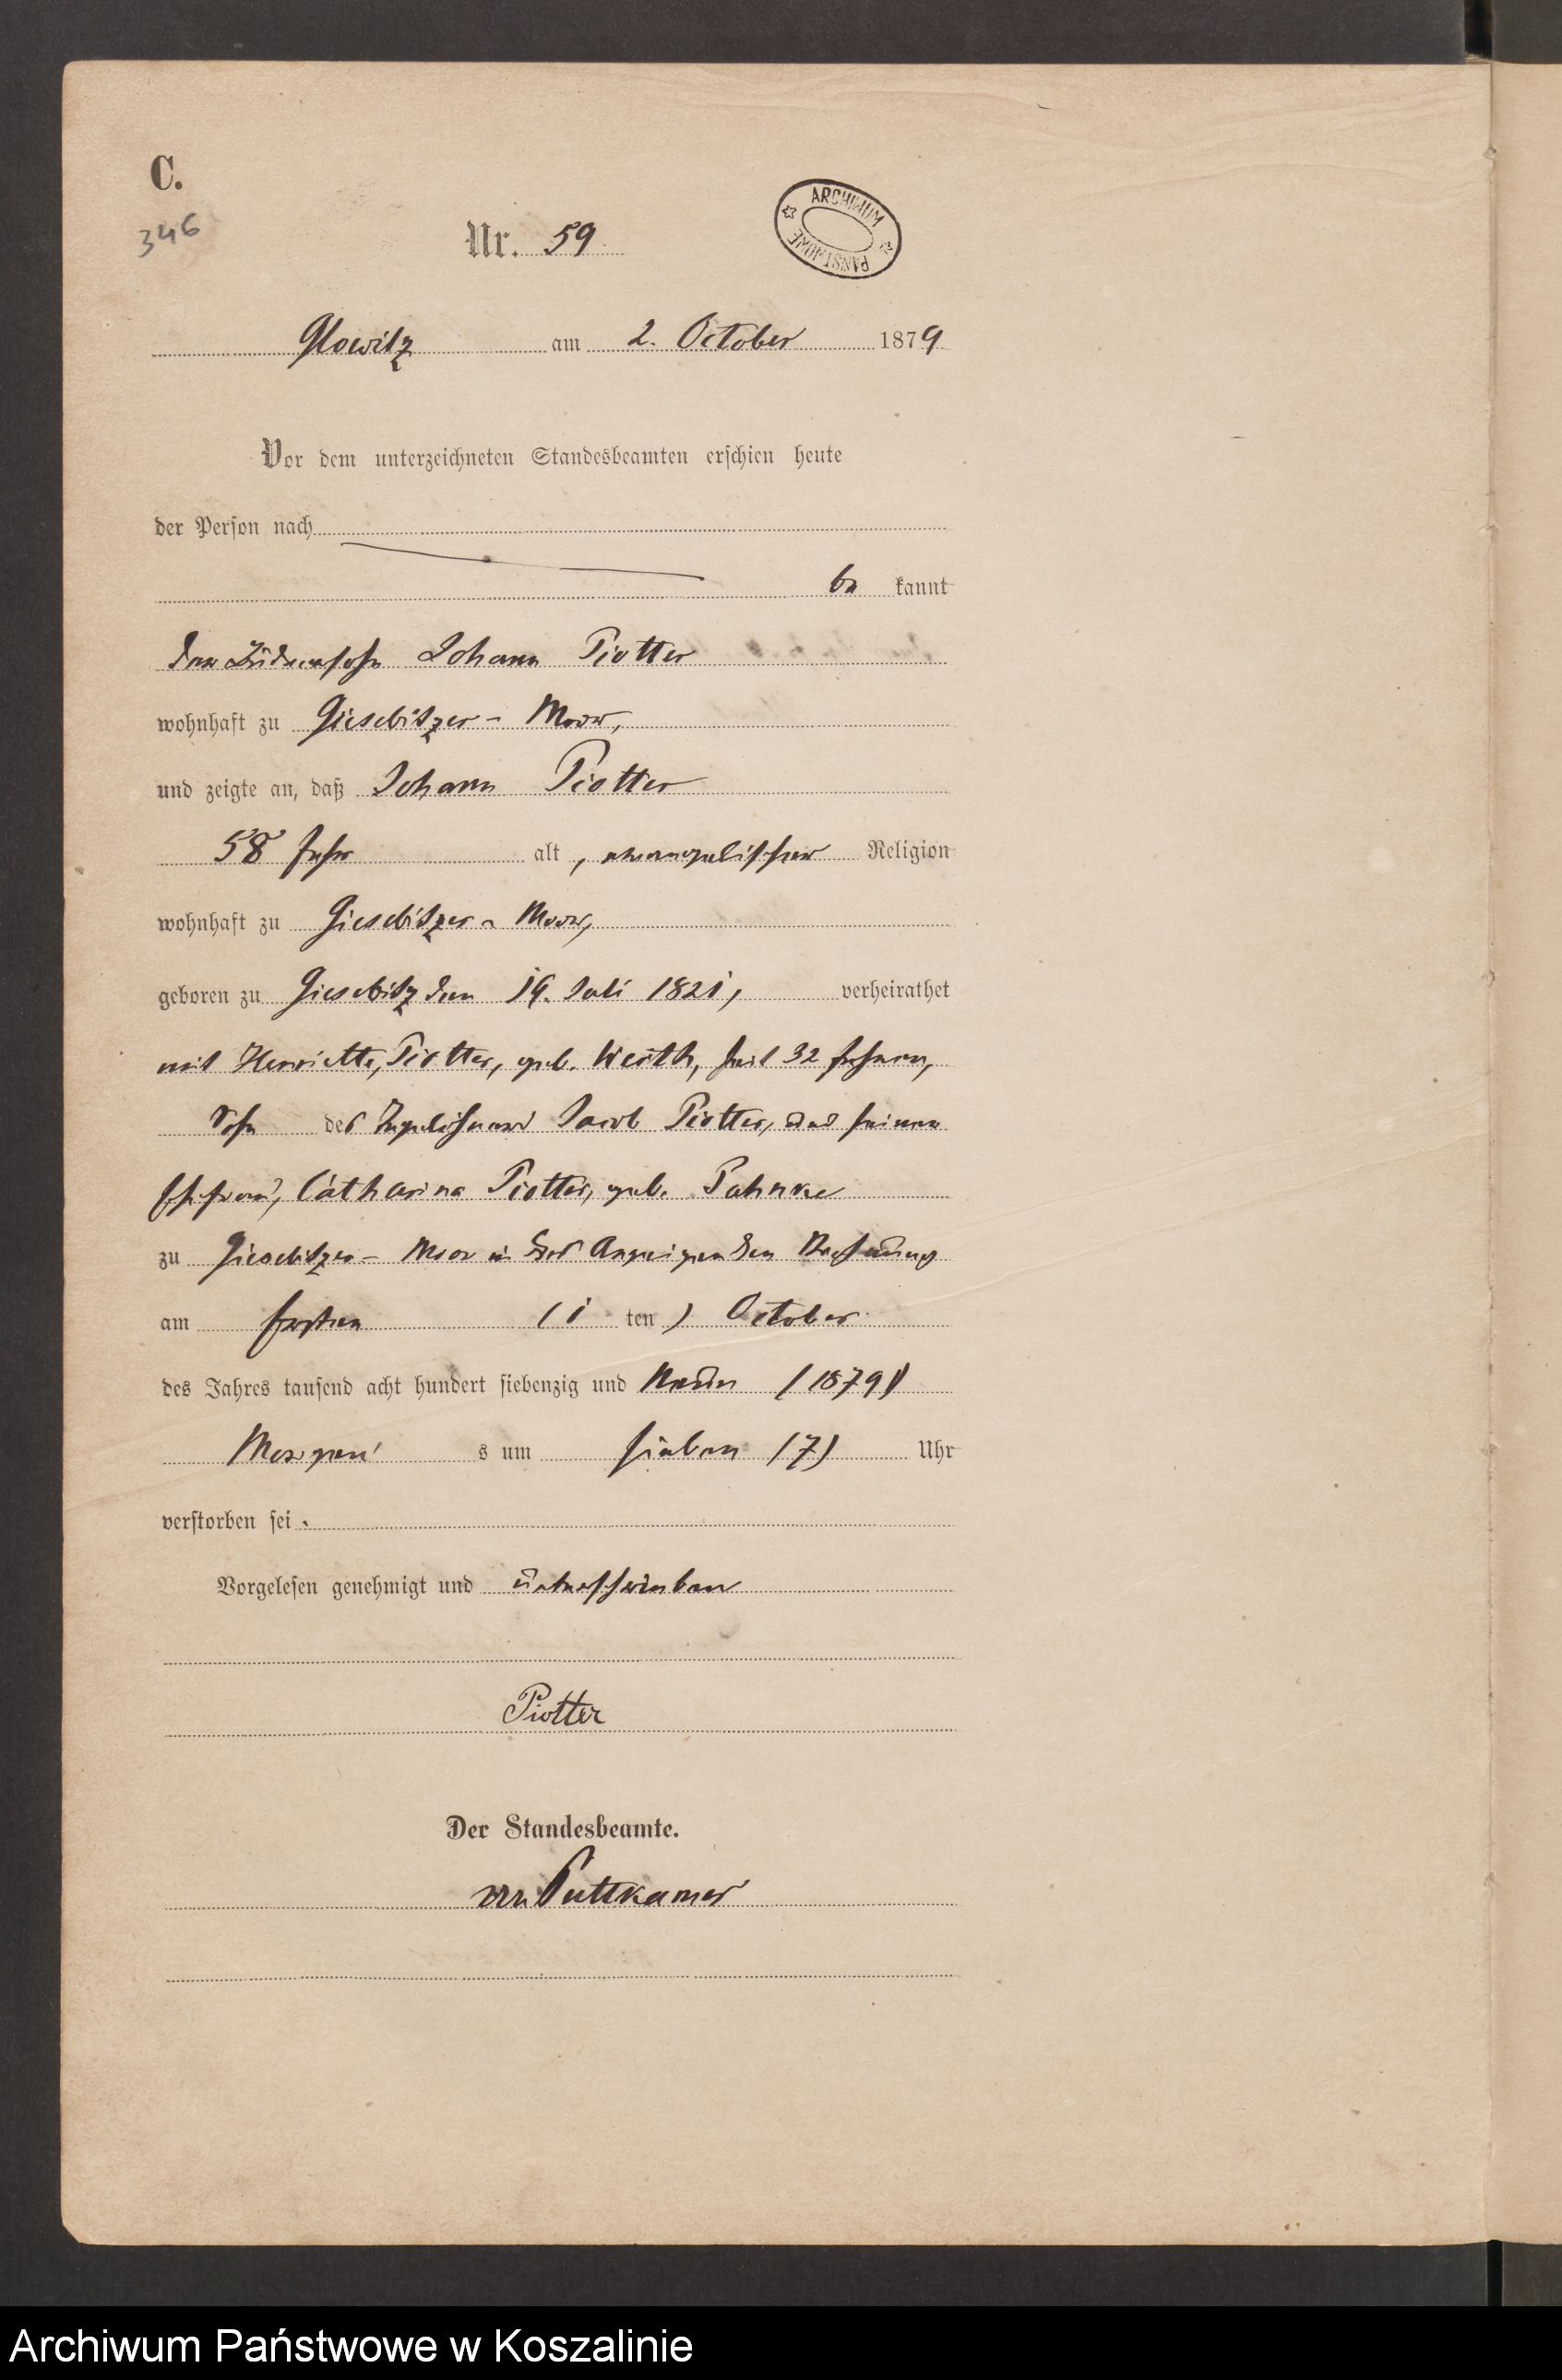 C.
346
Nr. 59
ARCHIWUM PAŃSTWOWE
Glowitz am 2. October 1879
Vor dem unterzeichneten Standesbeamten erschien heute
der Person nach
be kannt
der Büdnersohn Johann Piotter
wohnhaft zu Giesebitzer - Moor,
und zeigte an, daß Johann Piotter
58 Jahr alt, evangelischer Religion
wohnhaft zu Giesebitzer - Moor,
geboren zu Giesebitz den 19. Juli 1821, verheirathet
mit Henriette, Piotter, geb. Werth, seit 32 Jahren,
Sohn des Jacob Piotter, und seiner
Ehefrau, Catharina Piotter, geb. Pahnke
zu Giesebitzer - Moor in des Anzeigenden Wohnung
am Ersten (1 ten) October
des Jahres tausend acht hundert siebenzig und Neun (1879)
Morgen s um sieben (7) Uhr
verstorben sei.
Vorgelesen genehmigt und unterschrieben
Piotter
Der Standesbeamte.
von Puttkamer
Archiwum Państwowe w Koszalinie